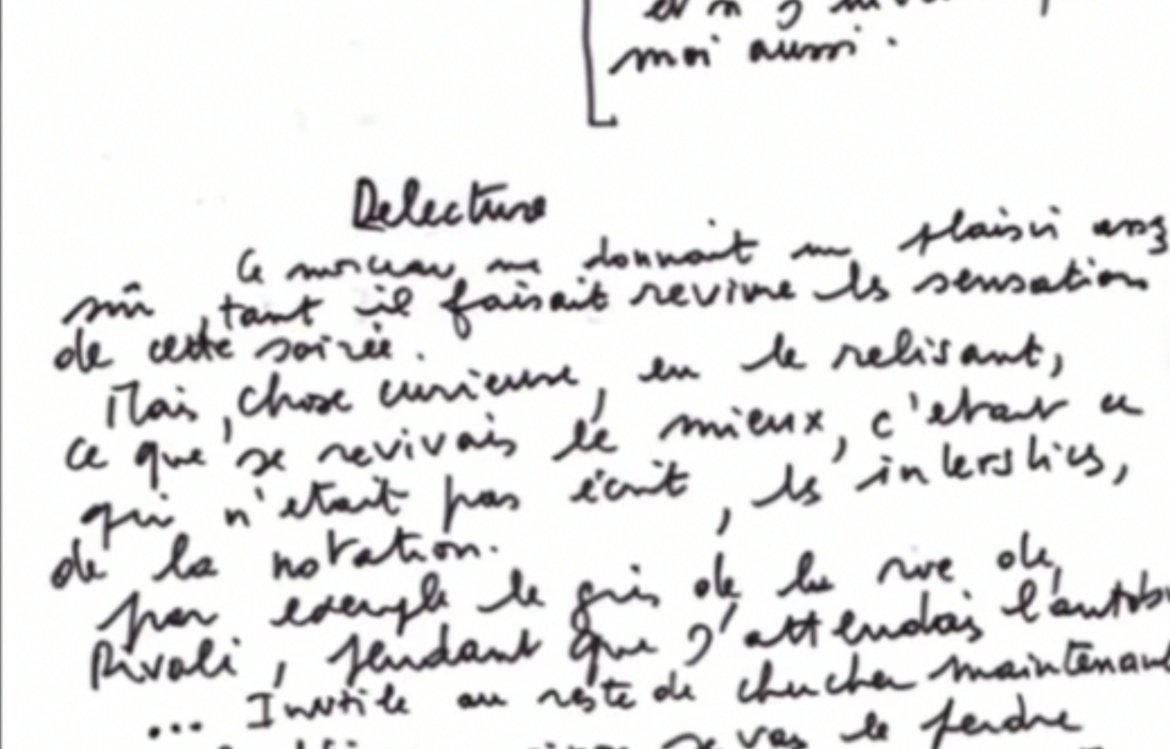 moi aussi.
Relecture
Ce morceau me donnait un plaisir assez
sûr, tant il faisait revivre les sensations
de cette soirée.
Mais, chose curieuse, en le relisant,
ce que je revivais le mieux, c'était ce
qui n'était pas écrit, les interstices,
de la notation.
par exemple le gris de la rue de
Rivoli, pendant que j'attendais l'autobu
... Inutile au reste de chercher maintenant
je vas le perdre